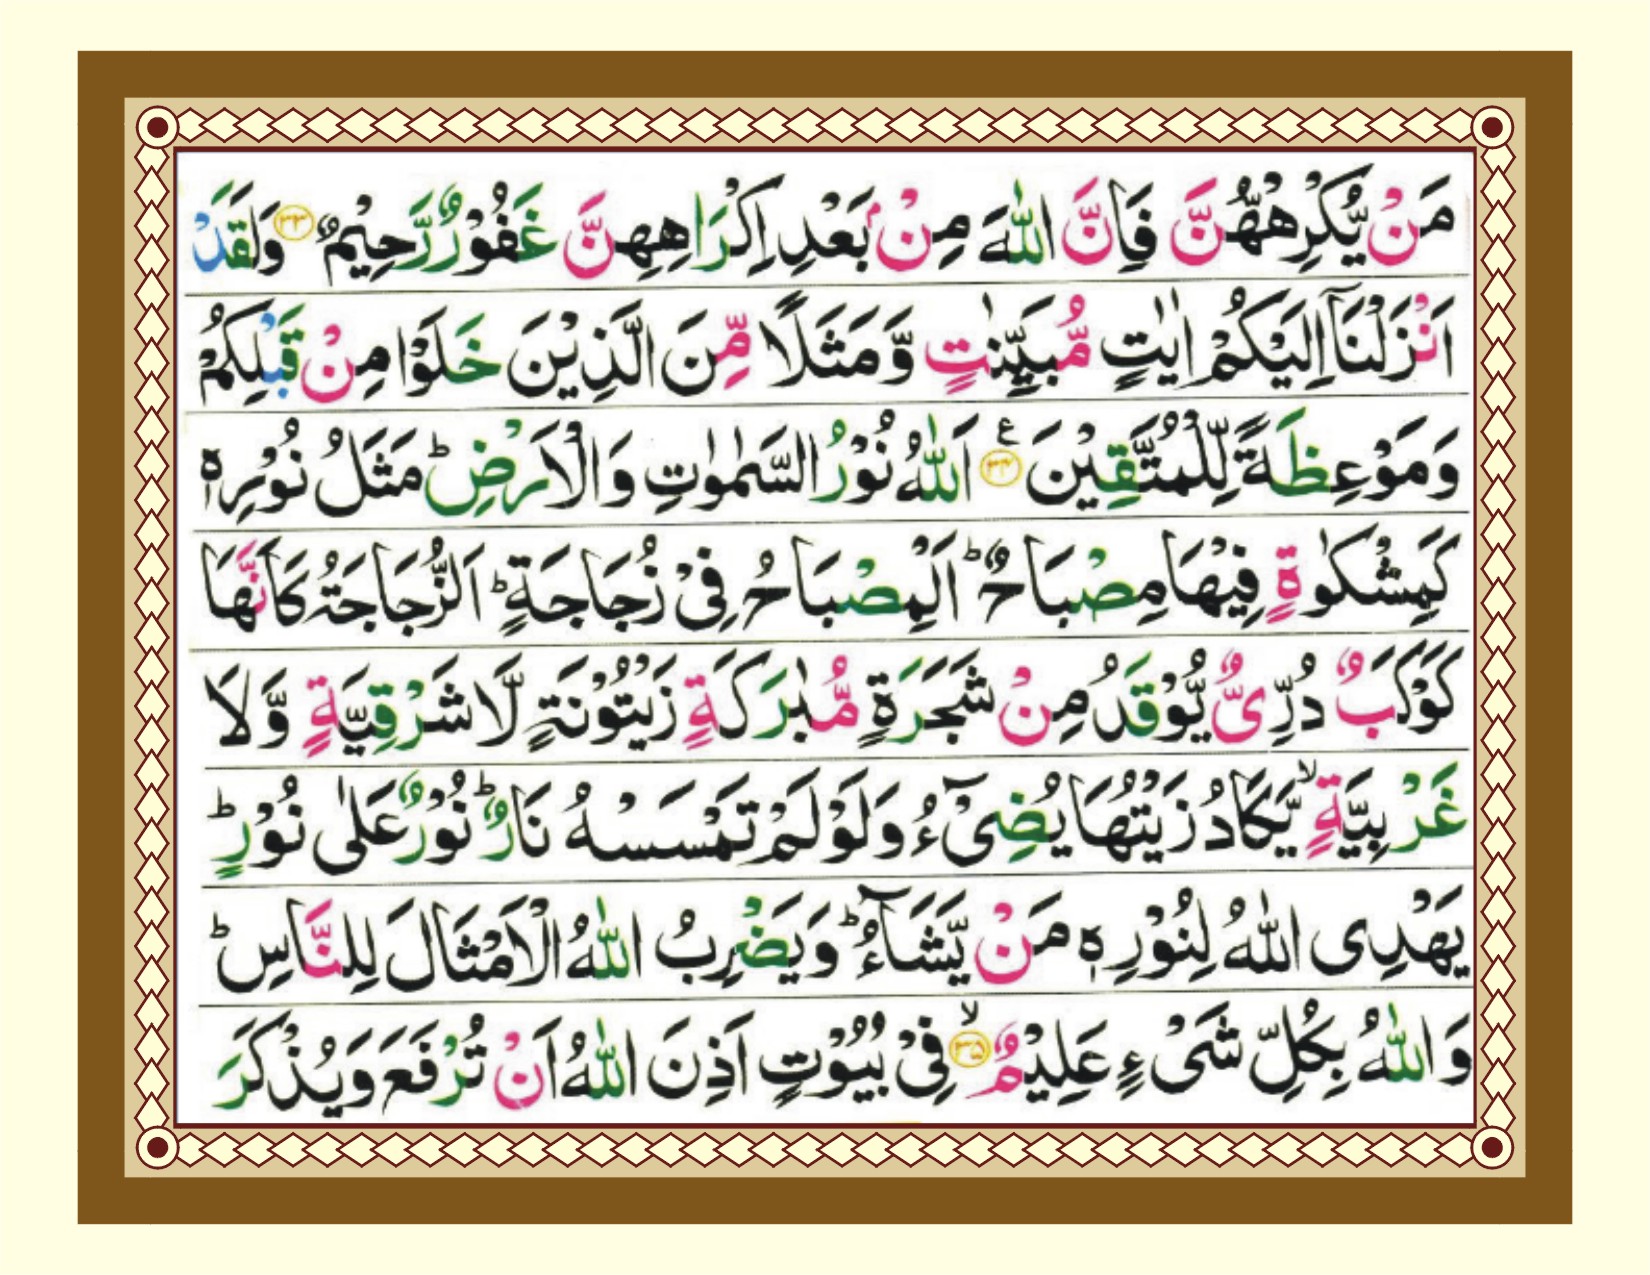 مَنْ يُّكْرِهْهُّنَّ فَاِنَّ اللّٰهَ مِنْۢ بَعْدِ اِكْرَاهِهِنَّ غَفُوْرٌ رَّحِيْمٌ ﴿۳۳﴾ وَلَقَدْ
اَنْزَلْنَاۤ اِلَيْكُمْ اٰيٰتٍ مُّبَيِّنٰتٍ وَّمَثَلًا مِّنَ الَّذِيْنَ خَلَوْا مِنْ قَبْلِكُمْ
وَمَوْعِظَةً لِّلْمُتَّقِيْنَ ﴿۳۴﴾ ع اَللّٰهُ نُوْرُ السَّمٰوٰتِ وَالْاَرْضِ ؕ مَثَلُ نُوْرِهٖ
كَمِشْكٰوةٍ فِيْهَا مِصْبَاحٌ ؕ اَلْمِصْبَاحُ فِىْ زُجَاجَةٍ ؕ اَلزُّجَاجَةُ كَاَنَّهَا
كَوْكَبٌ دُرِّىٌّ يُّوْقَدُ مِنْ شَجَرَةٍ مُّبٰرَكَةٍ زَيْتُوْنَةٍ لَّا شَرْقِيَّةٍ وَّلَا
غَرْبِيَّةٍ ۙ يَّكَادُ زَيْتُهَا يُضِىْٓءُ وَلَوْ لَمْ تَمْسَسْهُ نَارٌ ؕ نُوْرٌ عَلٰى نُوْرٍ ؕ
يَهْدِى اللّٰهُ لِنُوْرِهٖ مَنْ يَّشَآءُ ؕ وَيَضْرِبُ اللّٰهُ الْاَمْثَالَ لِلنَّاسِ ؕ
وَاللّٰهُ بِكُلِّ شَىْءٍ عَلِيْمٌ ۙ﴿۳۵﴾ فِىْ بُيُوْتٍ اَذِنَ اللّٰهُ اَنْ تُرْفَعَ وَيُذْكَرَ